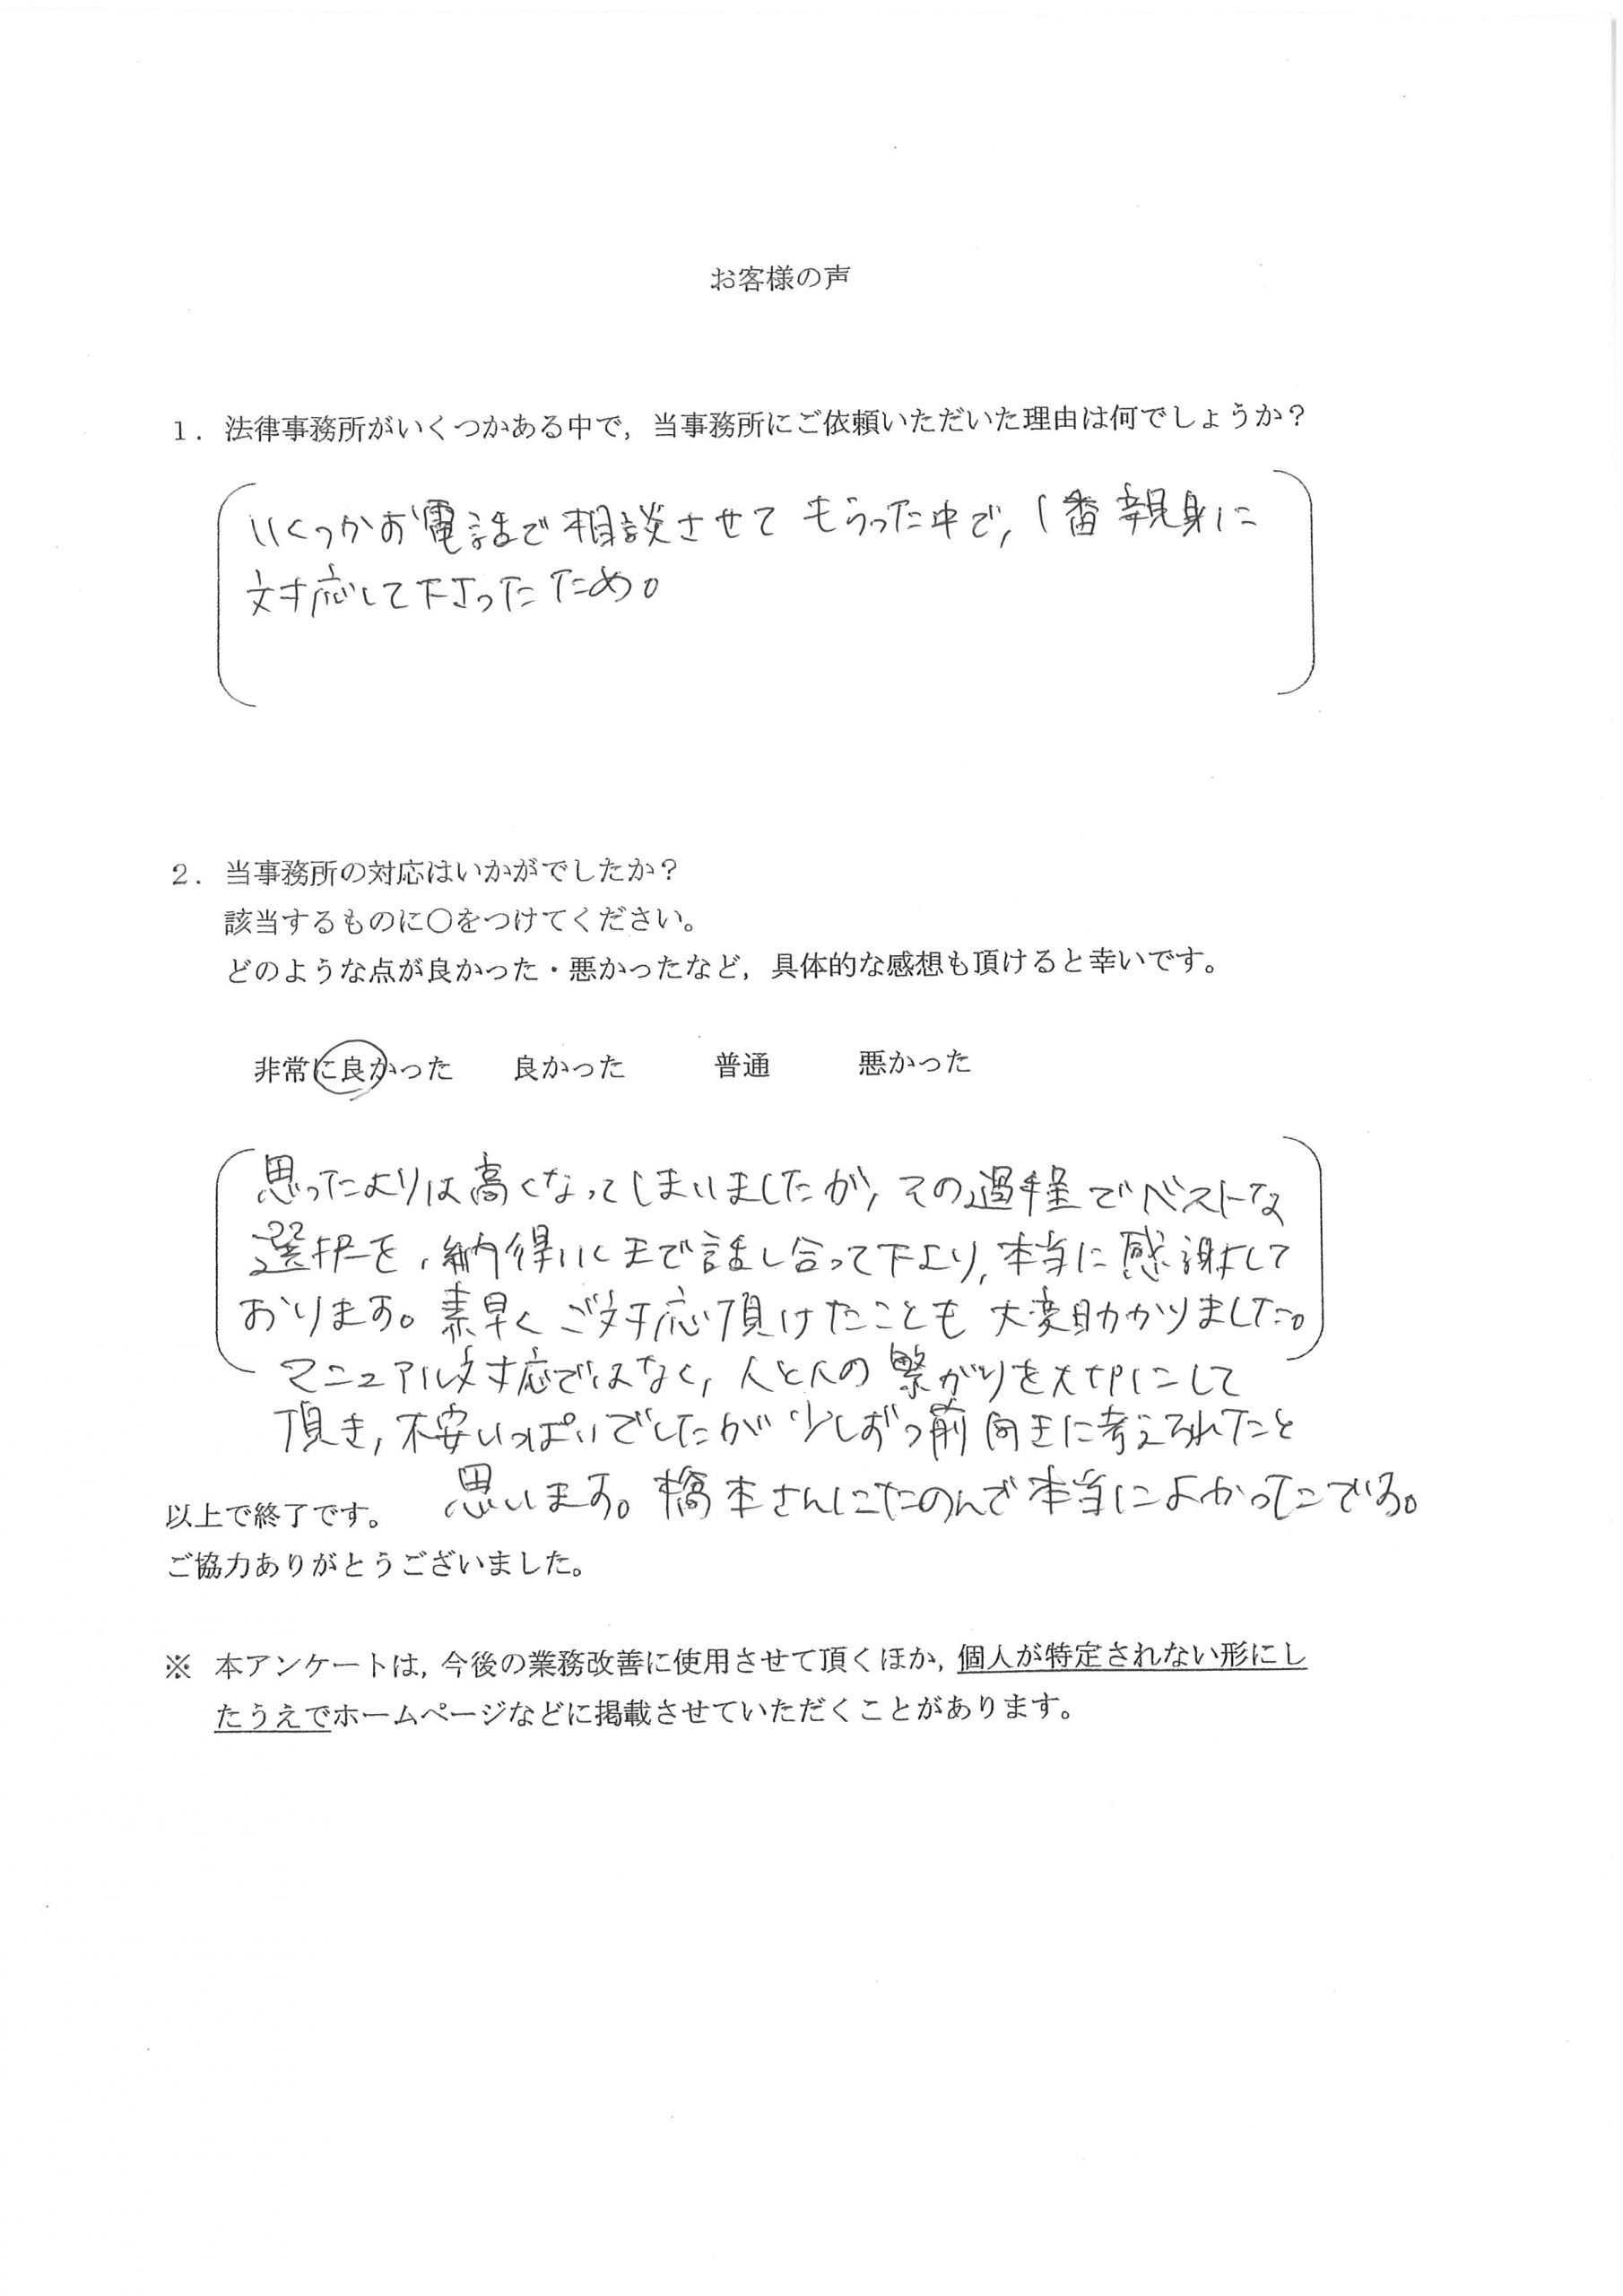 お客様の声
1. 法律事務所がいくつかある中で，当事務所にご依頼いただいた理由は何でしょうか？
いくつかお電話で相談させてもらった中で，1番親身に
対応して下さったため。
2. 当事務所の対応はいかがでしたか？
該当するものに○をつけてください。
どのような点が良かった・悪かったなど，具体的な感想も頂けると幸いです。
非常に良かった　良かった　普通　悪かった
思ったよりは高くなってしまいましたが，その過程でベストな
選択を，納得いくまで話し合って下さり，本当に感謝して
おります。素早くご対応頂けたことも大変助かりました。
マニュアル対応ではなく，人と人の繋がりを大切にして
頂き，不安いっぱいでしたが少しずつ前向きに考えられたと
思います。橋本さんにたのんで本当によかったです。
以上で終了です。
ご協力ありがとうございました。
※ 本アンケートは，今後の業務改善に使用させて頂くほか，個人が特定されない形にし
たうえでホームページなどに掲載させていただくことがあります。